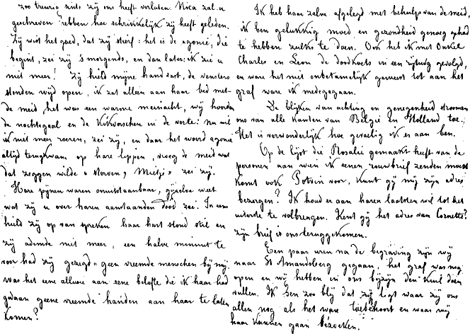 zoo treurig zijds zij ons heeft verlaten. Nica zal u
geschreven hebben hoe schrikkelijk zij heeft geleden.
Zij wist het goed, dat zij stierf: het is de agonie, die
begint, zei zij 's morgends, en dan later: ik zie u
niet meer! Zij hield mijne hand vast, de vensters
stonden wijd open, ik zat alleen aan haar bed met
de meid, het was een warme meinacht, wij hoorden
de nachtegaal en de kikvorschen in de verte: nu niet
ik niet meer weenen, zei zij, en daar het woord agonie
altijd terugkwam op hare lippen, vroeg de meid wat
dat zeggen wilde "sterven, Mietje" zei zij.
Hare pijnen waren onuitstaanbaar, gijzelve weet
wat zij u over haren aanstaanden dood zei. In eens
hield zij op van spreken haar hart stond stil en
zij ademde niet meer, een halve minuut te
voor had zij gezegd: geen vreemde menschen bij mij,
was het een alluvie aan eene belofte die ik haar had
gedaan geene vreemde handen aan haar te laten
komen?
Ik het haar zelve afgelegd met behulp van de meid,
ik ben gelukkig moed en gezondheid genoeg gehad
te hebben zulks te doen. Ook het ik met Onkel
Charles en Leon de doodkoets in een rijtuig gevolgd,
en ware het niet onbetamelijk geweest tot aan het
graf ware ik medegegaan.
De blijken van achting en genegenheid stroomen
ons van alle kanten van België en Holland toe.
Het is verwonderlijk hoe gevoelig ik er aan ben.
Op de lijst die Rosalie gemaakt heeft van de
personen aan wien ik eenen rouwbrief zenden moest
komt ook Potvin voor, kunt gij mij zijn adres
bezorgen? Ik houd er aan haren laatsten wil tot het
uiterste te volbrengen. Kent gij het adres van Cornette?
zijn brief is ons teruggekomen.
Een paar uren na de begraving zijn wij
naar St Amandsberg gegaan, het graf was nog
open en wij hebben het ons bijzijn den kuil doen
vullen. Ik ben zoo blij dat zij ligt waar zij ons
allen nog als het ware toebehoort en waar wij
haar kunnen gaan bezoeken.